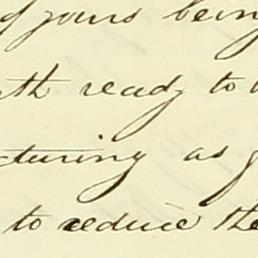 of yours being
th ready to
cturing as
to reduce the